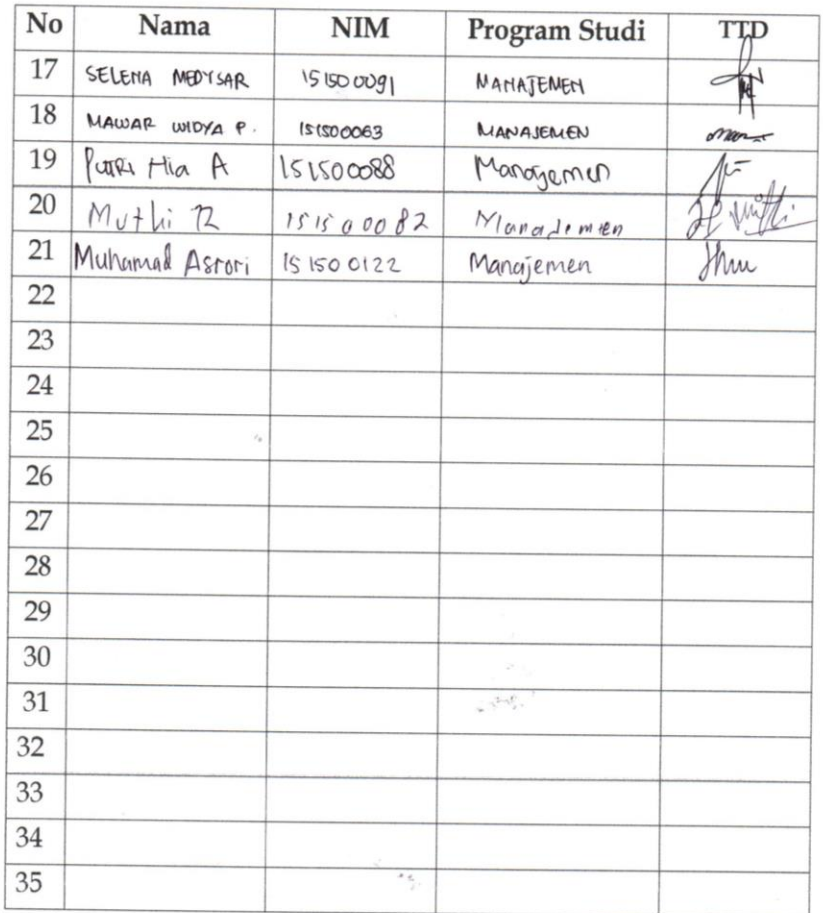 No Nama NIM Program Studi TTD
17 SELENA MEDYSAR 151500091 MANAJEMEN
18 MAWAR WIDYA P. 151500063 MANAJEMEN
19 PUTRI Hia A 151500088 Manajemen
20 Muthi R 151500082 Manajemen
21 Muhamad Asrori 151500122 Manajemen
22
23
24
25
26
27
28
29
30
31
32
33
34
35